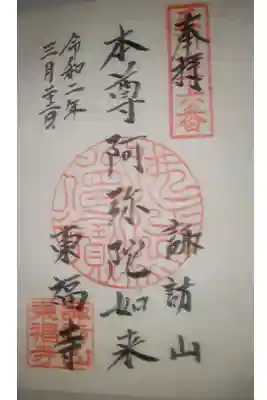 奉拝
諏訪山
本尊阿弥陀如来
東福寺
令和二年
三月廿二日
諏訪山
東福寺